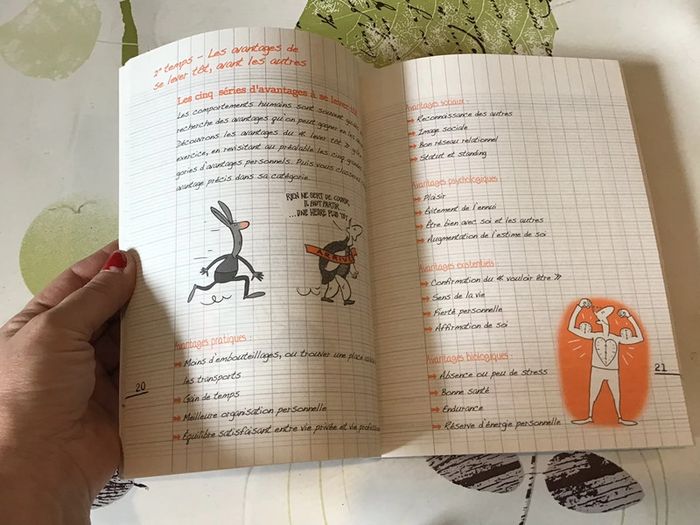 2e temps – Les avantages de
se lever tôt, avant les autres
Les cinq séries d'avantages à se lever tôt
Les comportements humains sont souvent
recherche des avantages qu'on peut gagner en
Découvrons les avantages du « lever tôt »
exercice, en revisitant au préalable les cinq
gories d'avantages personnels. Puis vous
avantage précis dans sa catégorie.
RIEN NE SERT DE COURIR,
IL FAUT PARTIR
...UNE HEURE PLUS TÔT
Avantages pratiques :
Moins d'embouteillages, ou trouver une place
les transports
Gain de temps
Meilleure organisation personnelle
Équilibre satisfaisant entre vie privée et vie
20
Avantages sociaux :
Reconnaissance des autres
Image sociale
Bon réseau relationnel
Statut et standing
Avantages psychologiques :
Plaisir
Évitement de l'ennui
Être bien avec soi et les autres
Augmentation de l'estime de soi
Avantages existentiels :
Confirmation du « vouloir être »
Sens de la vie
Fierté personnelle
Affirmation de soi
Avantages biologiques :
Absence ou peu de stress
Bonne santé
Endurance
Réserve d'énergie personnelle
21